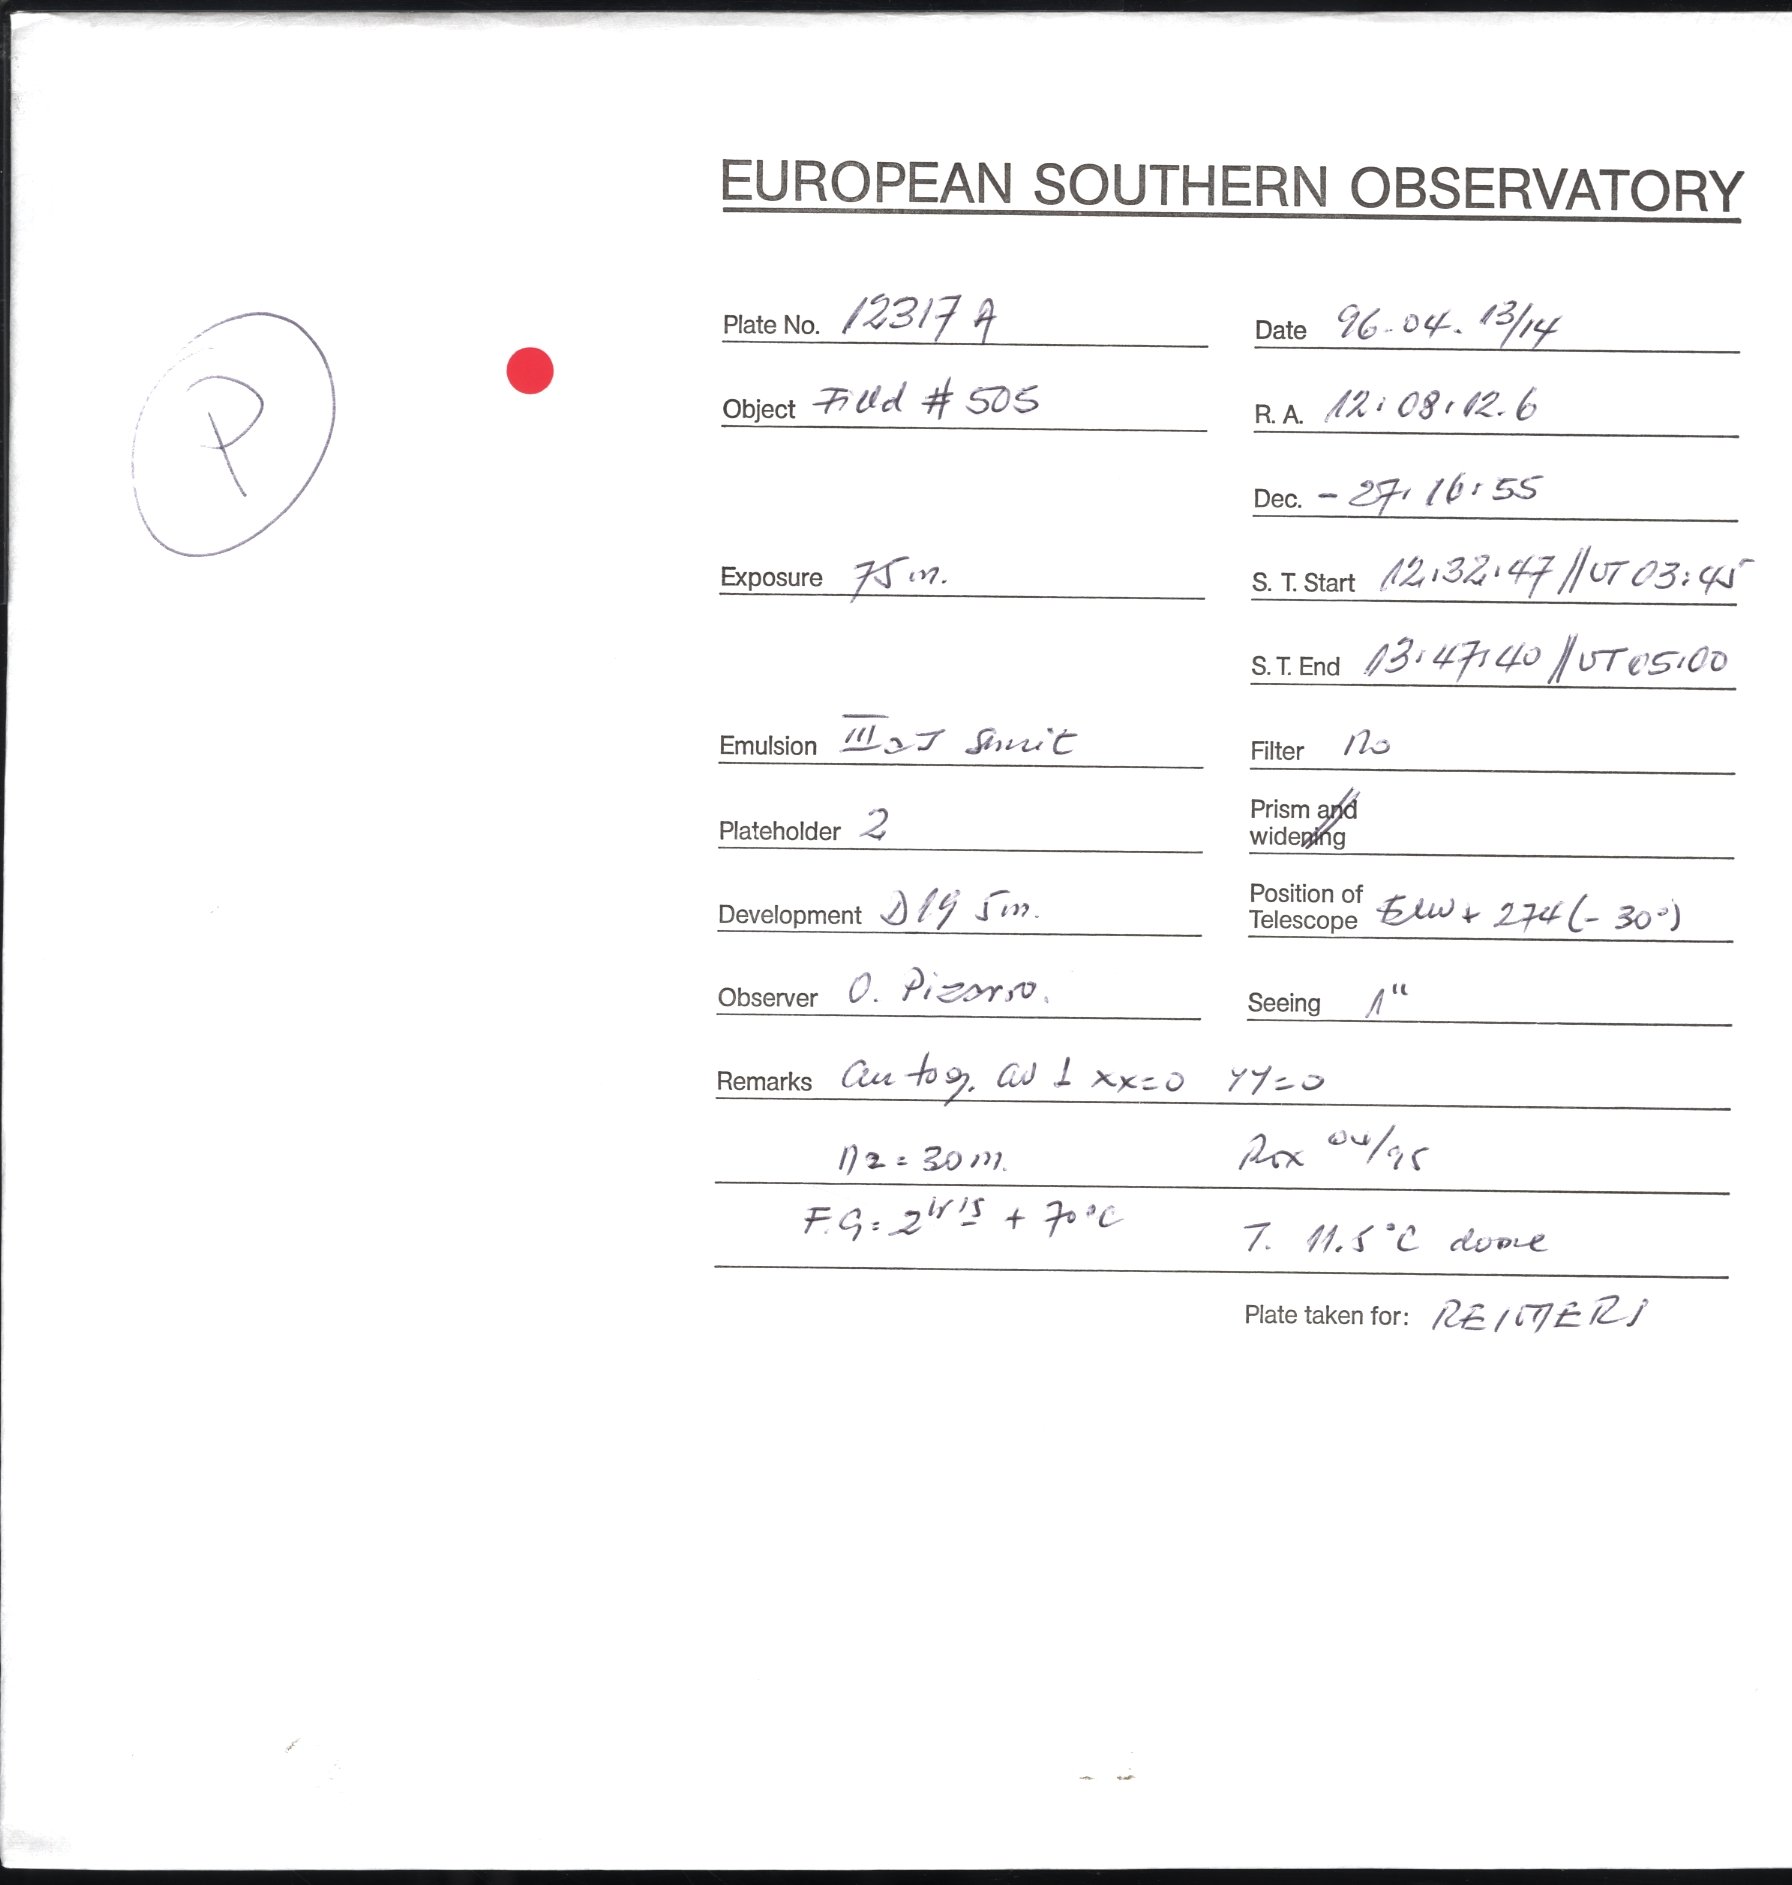 EUROPEAN SOUTHERN OBSERVATORY
P
Plate No. 12317 A
Date 96-04. 13/14
Object Field # 505
R. A. 12:08:12.6
Dec. - 27:16:55
Exposure 75 m.
S. T. Start 12:32:47 // UT 03:45
S. T. End 13:47:40 // UT 05:00
Emulsion III aJ
Filter no
Plateholder 2
Prism and widening
Development D19 5m.
Position of Telescope + 274 (- 30°)
Observer O. Pizarro.
Seeing 1"
Remarks autog. xx=0 yy=0
N2 = 30 m.
04/95
F.G = 2 + 70°C
T. 11.5°C dome
Plate taken for: REIMERS